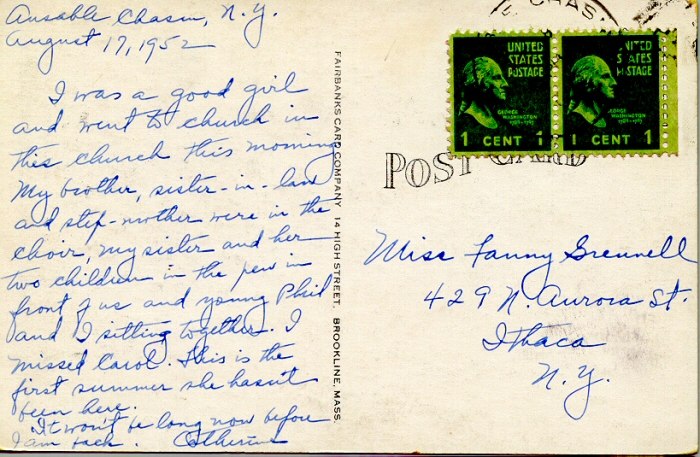 Ausable Chasm, N.Y.
August 17, 1952
I was a good girl
and went to church in
this church this morning
My brother, sister-in-law
and step-mother were in the
choir, my sister and her
two children in the pew in
front of us and young Phil
and I sitting together. I
missed Carol. This is the
first summer she hasn't
been here.
It won't be long now before
I am back. Catherine
FAIRBANKS CARD COMPANY, 14 HIGH STREET, BROOKLINE, MASS.
CHAS
UNITED
STATES
POSTAGE
GEORGE
WASHINGTON
1789-1797
1 CENT 1
UNITED
STATES
POSTAGE
GEORGE
WASHINGTON
1789-1797
1 CENT 1
POST CARD
Miss Fanny Grennell
429 N. Aurora St.
Ithaca
N.Y.